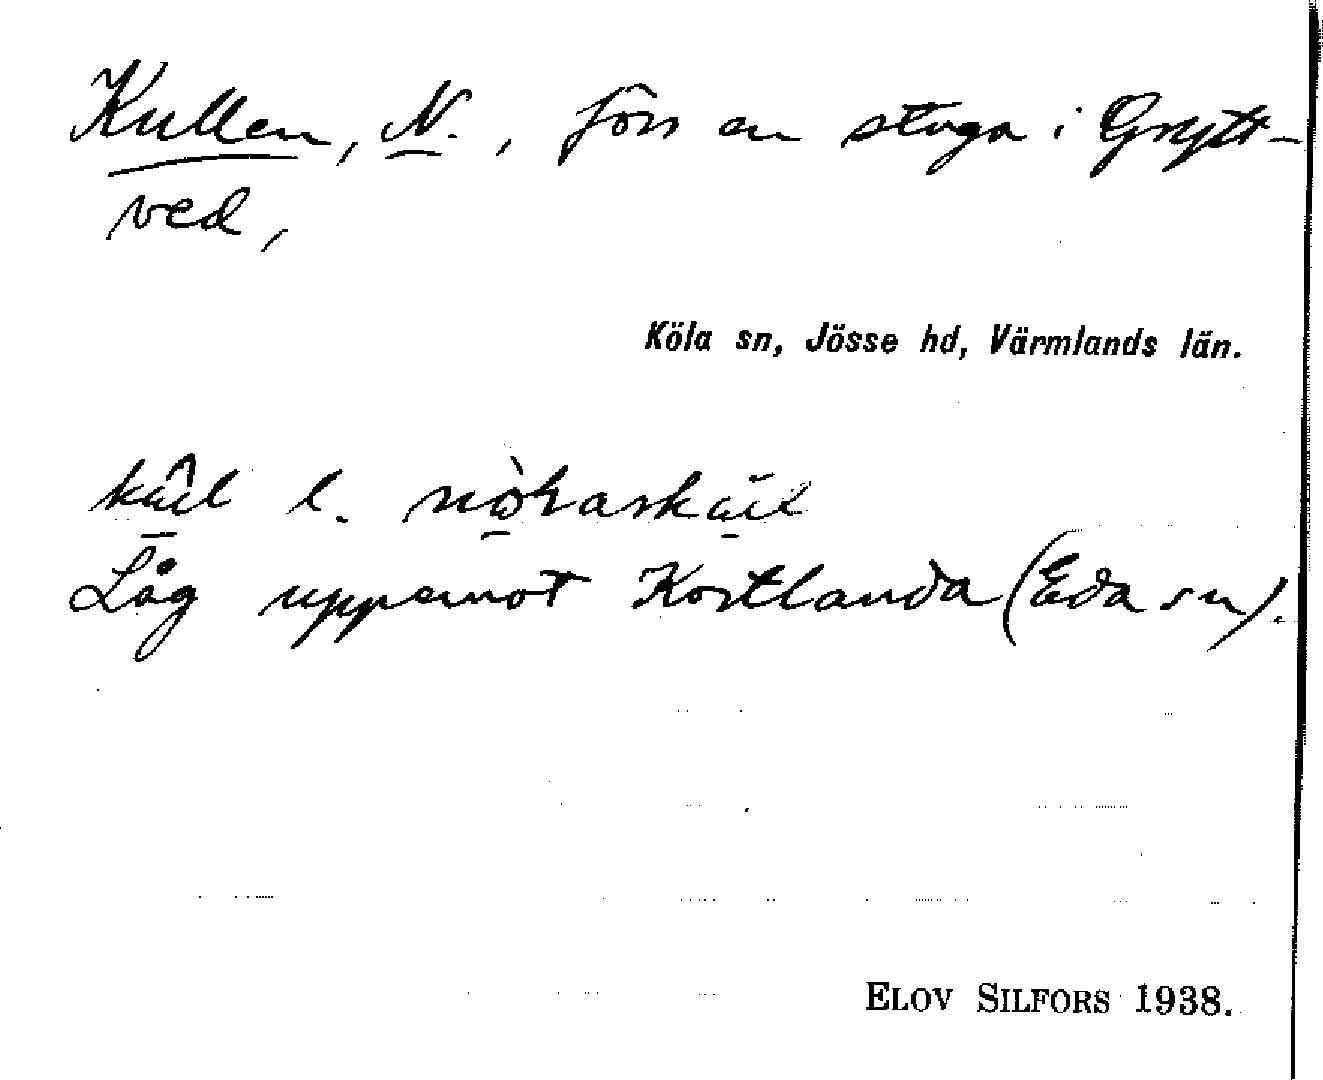 Kullen, N., förr en stuga i Grytt-
ved,
Köla sn, Jösse hd, Värmlands län.
l.
Låg uppemot Kortlanda (Eda sn).
ELOV SILFORS 1938.